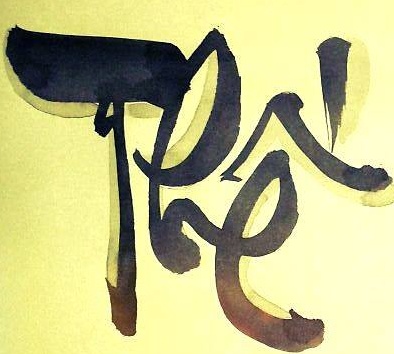 Thế